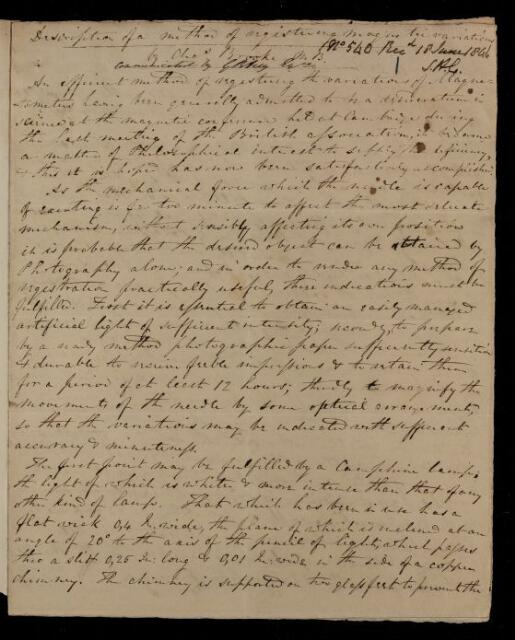 Description of a method of registering magnetic variations
(No 540 Recd 18 June 1846
by Chas Brooke M.B.
communicated by
S.H.C.
An efficient method of registering the variations of Magne-
tometers having been generally admitted to be a desideratum in
science at the magnetic conference held at Cambridge during
the last meeting of the British association, it became
a matter of Philosophical interest to supply the deficiency,
& this it is hoped has now been satisfactorily accomplished.
As the mechanical force which the needle is capable
of exerting is far too minute to affect the most delicate
mechanism, without sensibly affecting its own position
it is probable that the desired object can be obtained by
Photography alone; and in order to render any method of
registration practically useful, three indications must be
fulfilled. First it is essential to obtain an easily managed
artificial light of sufficient intensity; secondly, to prepare
by a ready method photographic paper sufficiently sensitive
& durable to receive feeble impressions & to retain them
for a period of at least 12 hours; thirdly to magnify the
movements of the needle by some optical arrangements,
so that the variations may be indicated with sufficient
accuracy & minuteness.
The first point may be fulfilled by a Camphine lamp,
the light of which is whiter & more intense than that of any
other kind of lamp. That which has been in use has a
flat wick 0,4 In. wide, the plane of which is inclined at an
angle of 20° to the axis of the pencil of light, which passes
thro a slitt 0,25 In: long & 0,01 In. wide in the side of a copper
chimney. The chimney is supported on two glass feet to prevent the